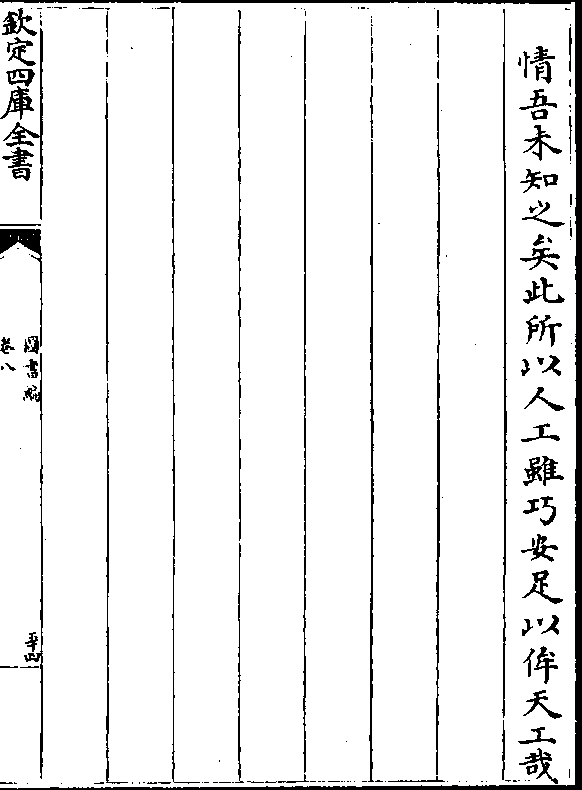 情吾未知之矣此所以人工雖巧安足以侔天工哉
欽定四庫全書
圖書編
卷八